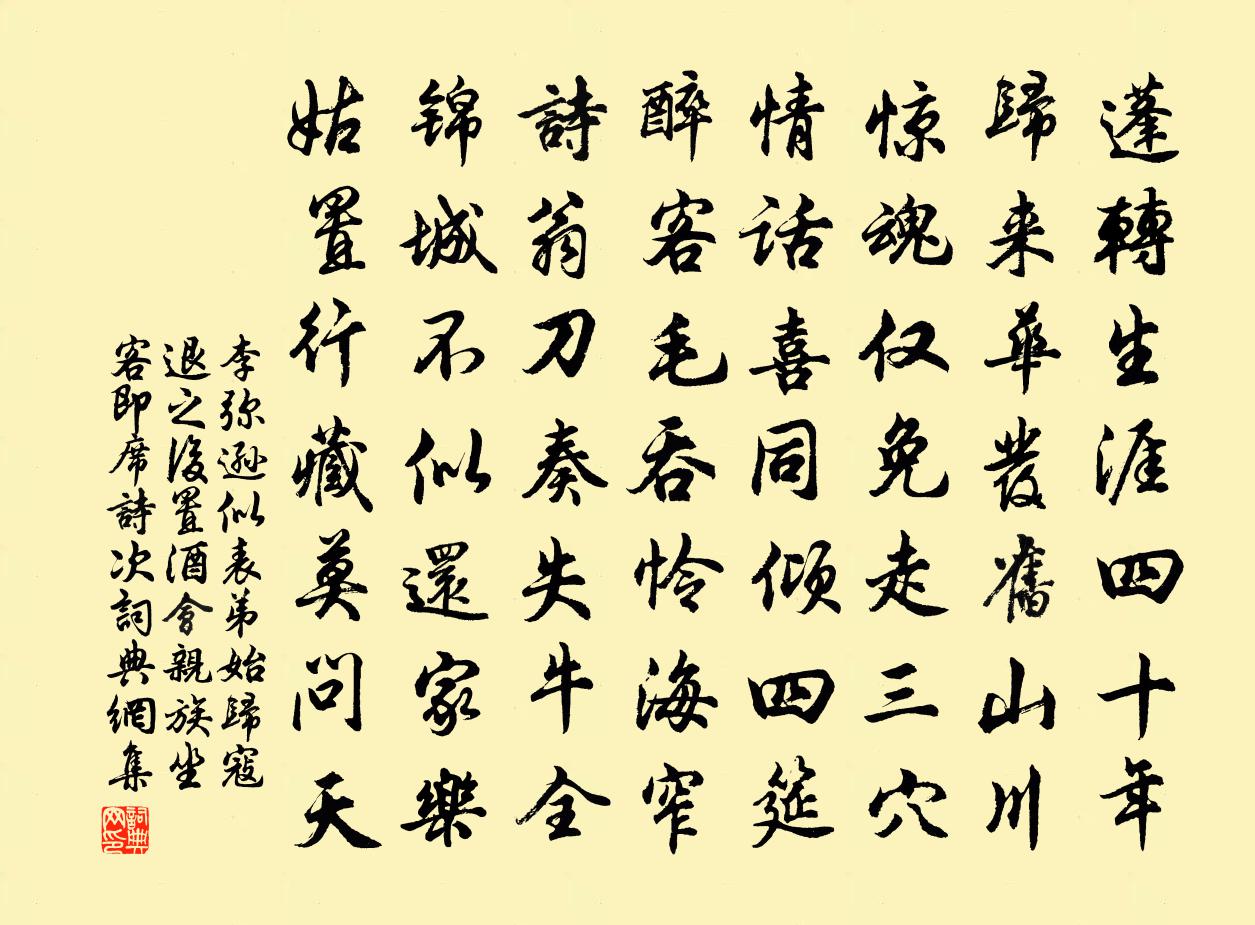 蓬轉生涯四十年
歸来華發舊山川
惊魂仅免走三穴
情话喜同倾四筵
醉客毛吞怜海窄
詩翁刀奏失牛全
锦城不似還家樂
姑置行藏莫问天
李弥遜似表弟始歸寇
退之後置酒會親族坐
客即席詩次詞典網集
詞典
网印